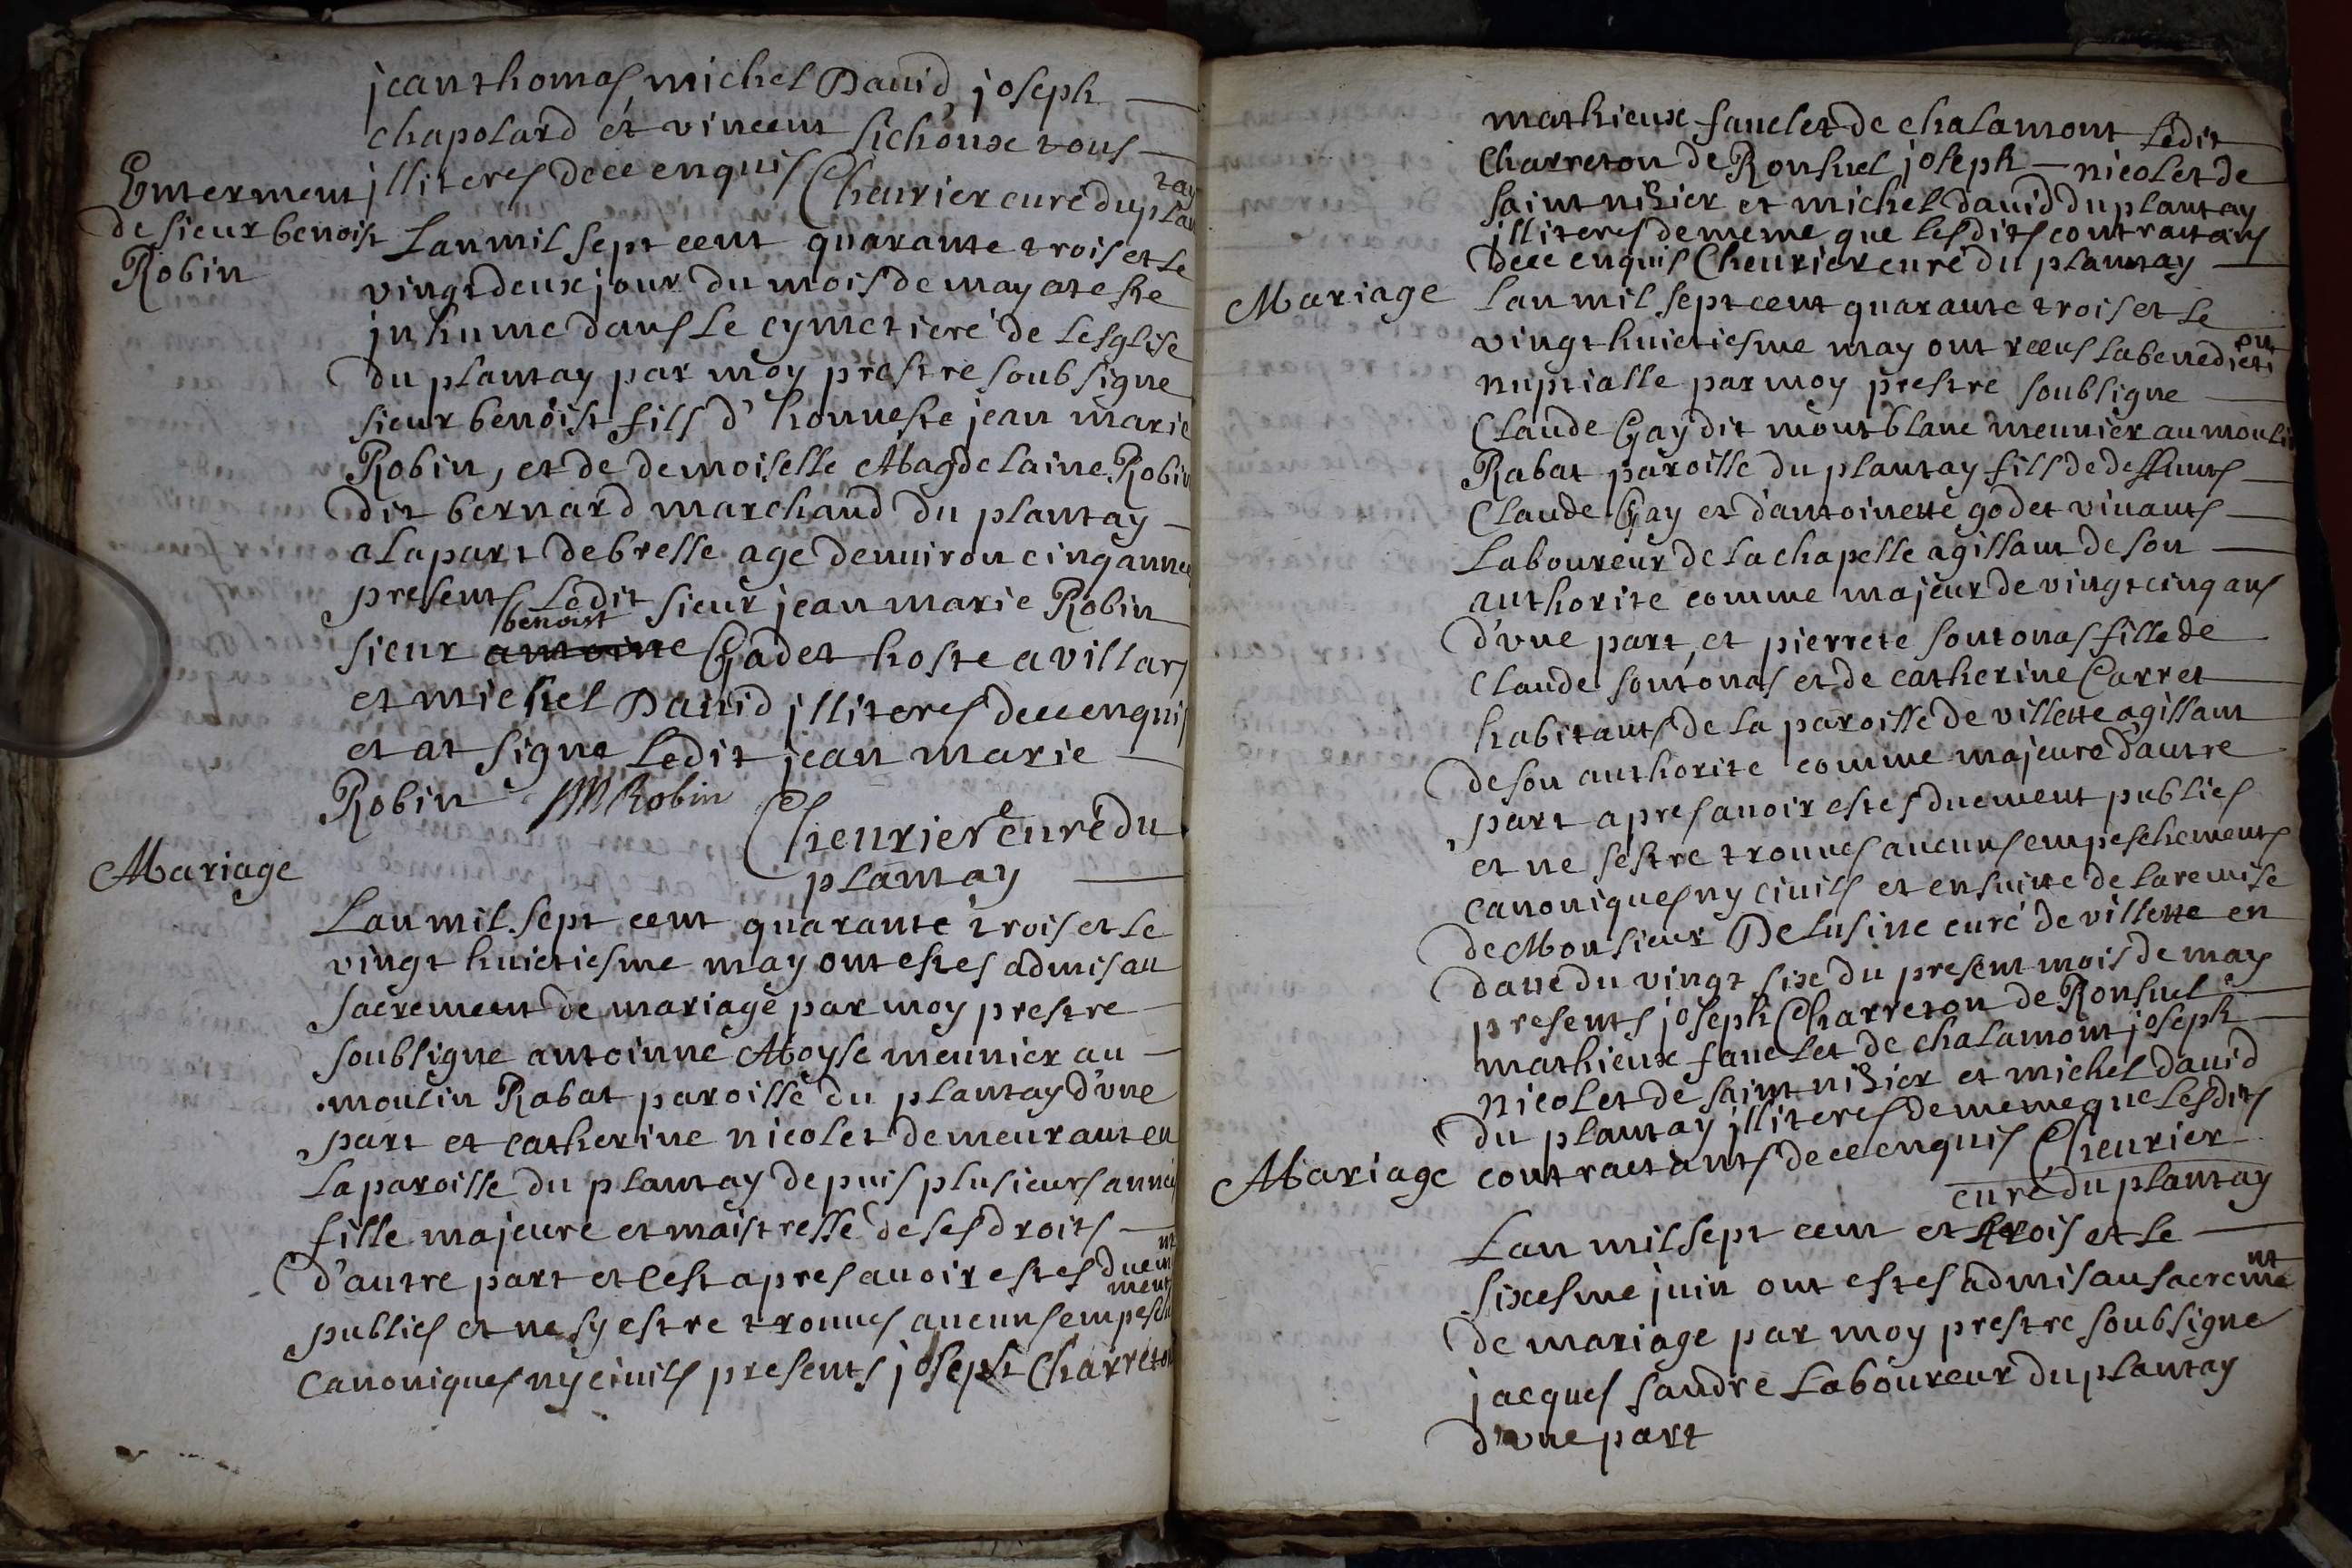 jean thomas, michel David, joseph
chapolard et vincent sichoux tous
illiteres dece enquis Cheurier curé du plantay
Enterment
de sieur benoist
Robin
Lan mil sept cent quarante trois et le
vingt deux jour du mois de may at esté
inhumé dans le cymetiere de Lesglise
du plantay par moy prestre soubsigne
sieur benoist fils d'honneste jean marie
Robin, et de demoiselle Magdelaine Robin
dit bernard marchand du plantay
a la part de bresse age denuiron cinq annees
presents Ledit sieur jean marie Robin
sieur antoine benoist Gadet hoste a villars
et michel David illiteres dece enquis
et at signe Ledit jean marie
Robin JM Robin Cheurier curé du
plantay
Mariage
Lan mil sept cent quarante trois et le
vingt huictiesme may ont estes admis au
sacrement de mariage par moy prestre
soubsigne antoinne Moyse meunier au
moulin Rabat paroisse du plantay d'vne
part et catherine nicolet demeurant en
La paroisse du plantay depuis plusieurs années
fille majeure et maistresse de ses droits
d'autre part et cest apres auoir estes duement
publies et ne sy estre trouues aucuns empeschement
canoniques ny ciuils presents joseph Charreton
mathieux fauclet de chalamont Ledit
Charreton de Ronsuel joseph nicolet de
saint nisier et michel dauid du plantay
illiteres de meme que lesdits contractans
dece enquis Cheurier curé du plantay
Mariage
Lan mil sept cent quarante trois et le
vingt huictiesme may ont receus la benediction
nuptialle par moy prestre soubsigne
Claude Gay dit mont blanc meunier au moulin
Rabat paroisse du plantay fils de deffunts
Claude Gay et d'antoinette godet viuants
Laboureur de la chapelle agissant de son
authorite comme majeur de vingt cinq ans
d'vne part, et pierrete soutonas fille de
Claude soutonas et de catherine Carret
habitants de la paroisse de villette agissant
de son authorite comme majeure d'autre
part apres auoir estes duement publies
et ne sestre trouues aucuns empeschements
canoniques ny ciuils et ensuitte de la remise
de Monsieur Delusine curé de villette en
datte du vingt six du present mois de may
presents joseph Charreton de Ronsuel
mathieux fauclet de chalamont joseph
nicolet de saint nisier et michel dauid
du plantay illiteres de meme que Lesdits
contractants dece enquis Cheurier
curé du plantay
Mariage
Lan mil sept cent et trois et le
sixesme juin ont estes admis au sacrement
de mariage par moy prestre soubsigne
jacques sandre Laboureur du plantay
d'vne part